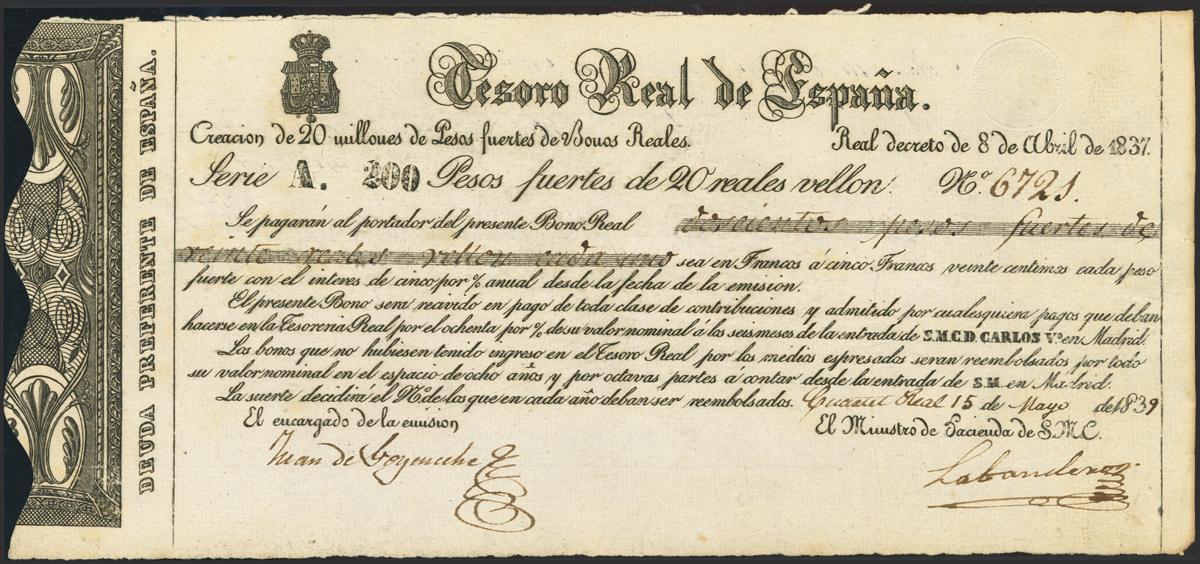 DEUDA PREFERENTE DE ESPAÑA.
Tesoro Real de España.
Creacion de 20 millones de Pesos fuertes de Bonos Reales. Real decreto de 8 de Abril de 1837.
Serie A. 200 Pesos fuertes de 20 reales vellon. Nº 6721.
Se pagarán al portador del presente Bono Real doscientos pesos fuertes de
veinte reales vellon cada uno sea en Francos á cinco Francos veinte centimos cada peso
fuerte con el interes de cinco por % anual desde la fecha de la emision.
El presente Bono sera recivido en pago de toda clase de contribuciones y admitido por cualesquiera pagos que deban
hacerse en la Tesoreria Real por el ochenta por % de su valor nominal á los seis meses de la entrada de S.M.C.D. CARLOS Vº en Madrid.
Los bonos que no hubiesen tenido ingreso en el Tesoro Real por los medios espresados seran reembolsados por todo
su valor nominal en el espacio de ocho años y por octavas partes á contar desde la entrada de S.M. en Madrid.
La suerte decidirá el Nº de los que en cada año deban ser reembolsados. Cuartel Real 15 de Mayo de 1839
El encargado de la emision El Ministro de Hacienda de S.M.C.
Juan de Goyeneche Labandero